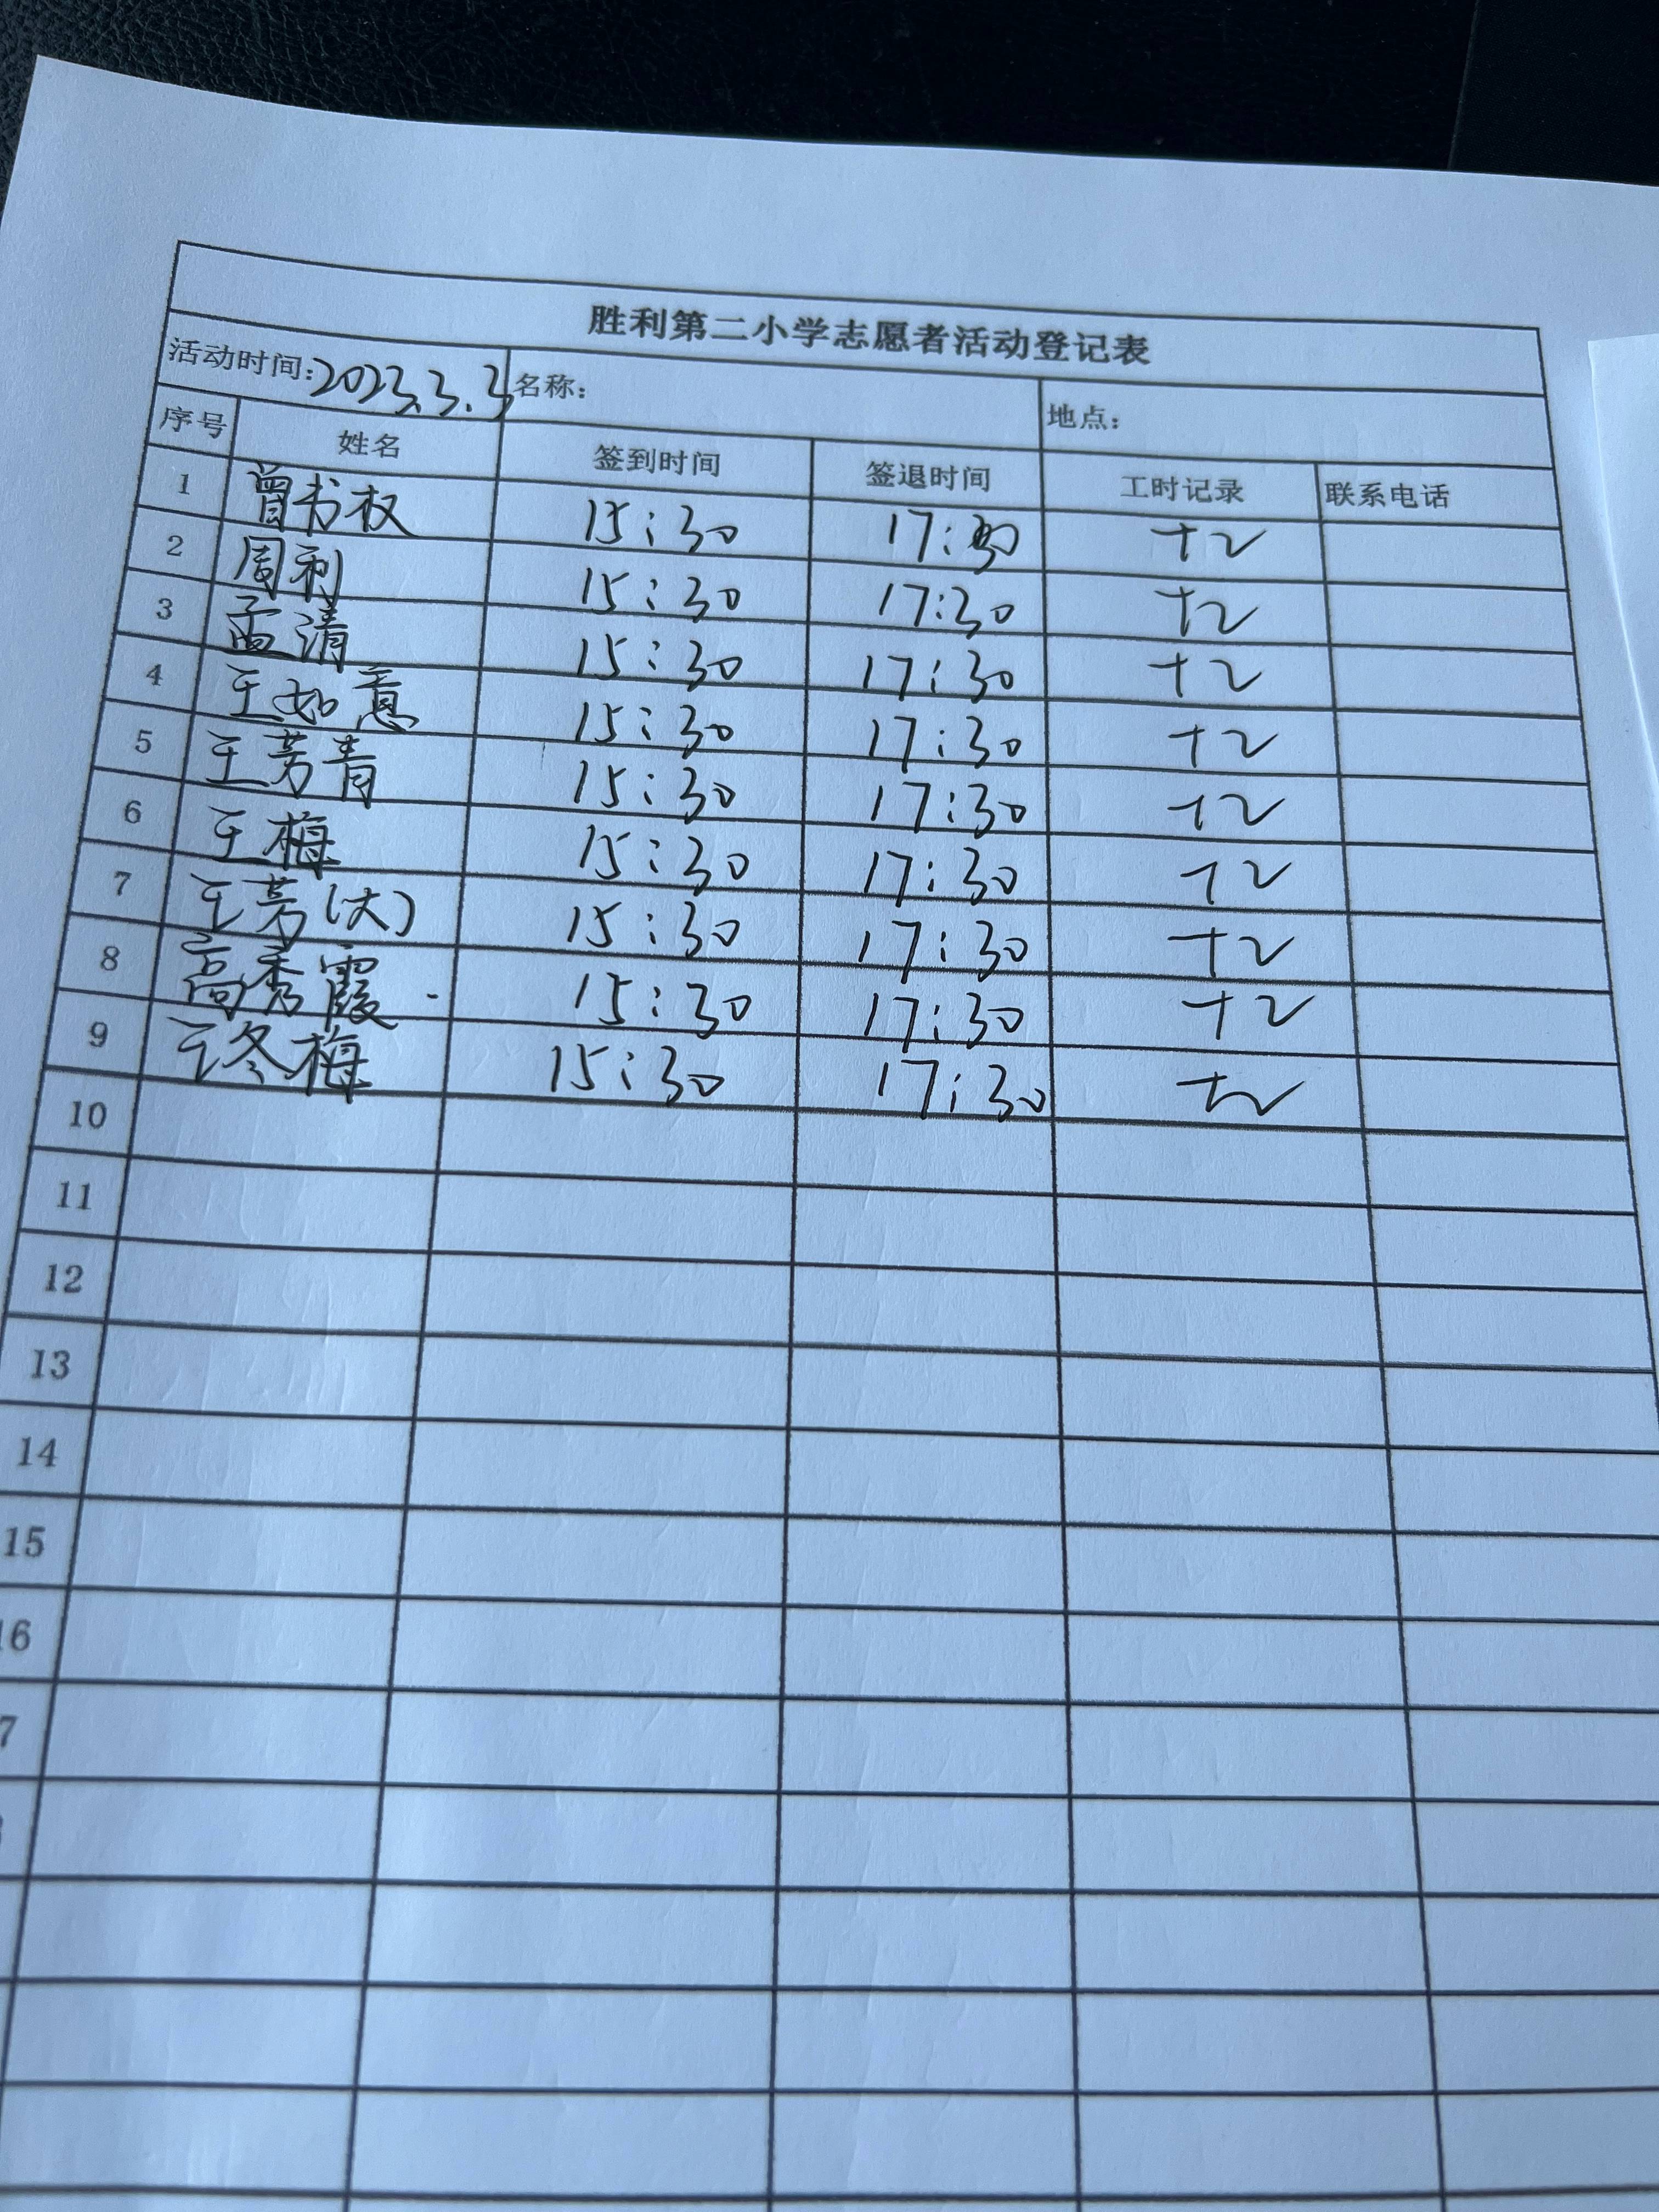 胜利第二小学志愿者活动登记表
活动时间：2023.3.3 名称： 地点：
序号 姓名 签到时间 签退时间 工时记录 联系电话
1 曾书权 15:30 17:30 +2
2 周利 15:30 17:30 +2
3 孟清 15:30 17:30 +2
4 王如意 15:30 17:30 +2
5 王芳青 15:30 17:30 +2
6 王梅 15:30 17:30 +2
7 王芳(大) 15:30 17:30 +2
8 高秀霞 15:30 17:30 +2
9 王冬梅 15:30 17:30 +2
10
11
12
13
14
15
16
7